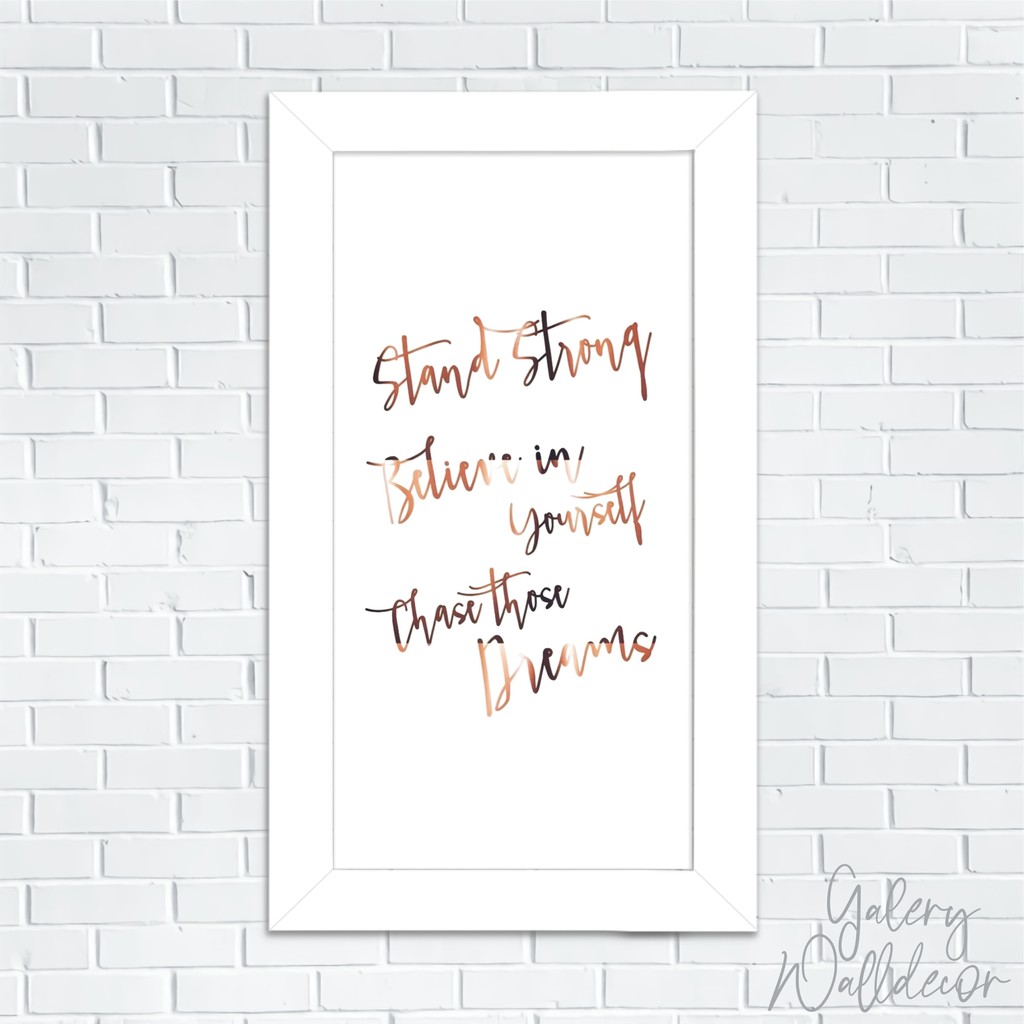 Stand Strong
Believe in
Yourself
Chase those
Dreams
Galery
Walldecor